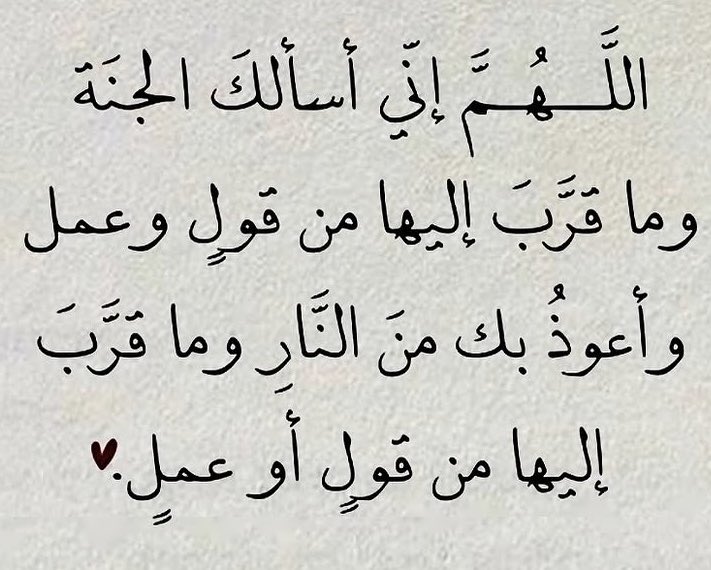 اللَّـــهُـــمَّ إنّي أسألكَ الجنَة
وما قرَّبَ إليها من قولٍ وعمل
وأعوذُ بك منَ النَّارِ وما قرَّبَ
إليها من قولٍ أو عملٍ.♥